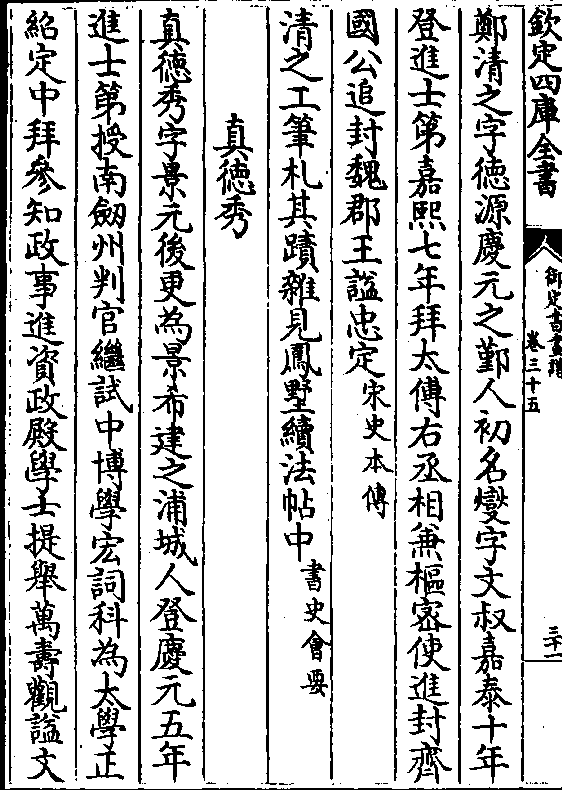 欽定四庫全書
御定書畫譜
卷三十五
三十一
鄭清之字徳源慶元之鄞人初名燮字文叔嘉泰十年
登進士第嘉熙七年拜太傅右丞相兼樞密使進封齊
國公追封魏郡王諡忠定宋史本傳
清之工筆札其蹟雜見鳳墅續法帖中書史會要
真徳秀
真徳秀字景元後更為景希建之浦城人登慶元五年
進士第授南劔州判官繼試中博學宏詞科為太學正
紹定中拜參知政事進資政殿學士提舉萬壽觀諡文